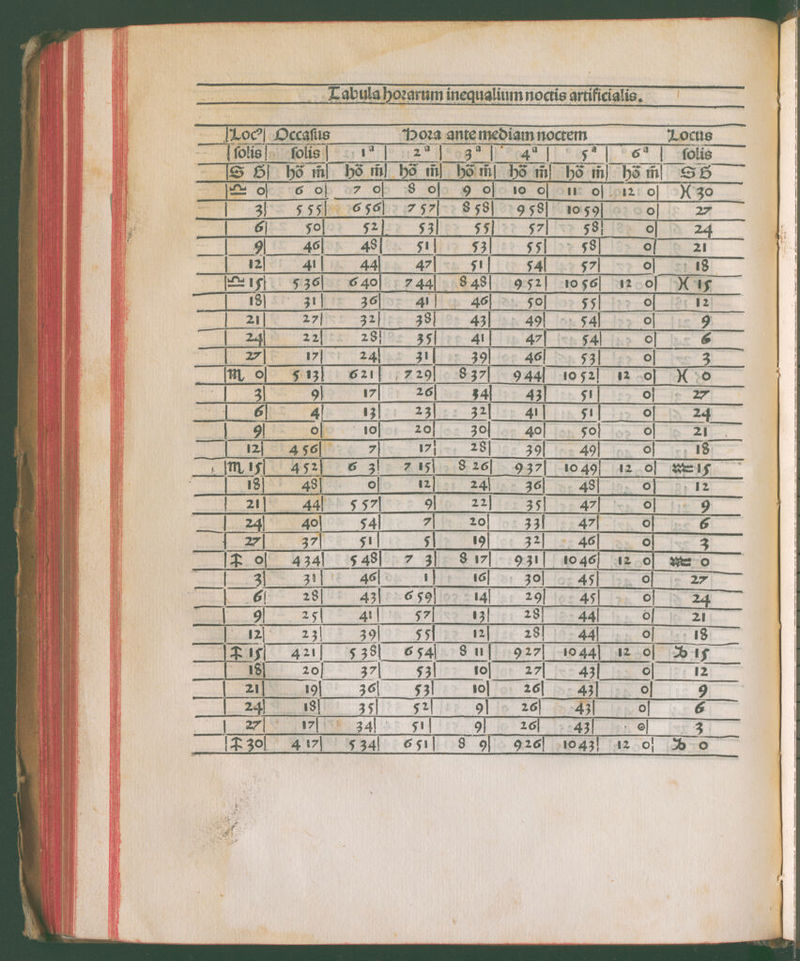 Tabula horarum inequalium noctis artificialis.
Locꝰ Occasus Hora ante mediam noctem Locus
solis solis 1ª 2ª 3ª 4ª 5ª 6ª solis
S G ho m̄ ho m̄ ho m̄ ho m̄ ho m̄ ho m̄ ho m̄ S G
♎ 0 6 0 7 0 8 0 9 0 10 0 11 0 12 0 ♓ 30
3 5 55 6 56 7 57 8 58 9 58 10 59 0 27
6 50 52 53 55 57 58 0 24
9 46 48 51 53 55 58 0 21
12 41 44 47 51 54 57 0 18
♎ 15 5 36 6 40 7 44 8 48 9 52 10 56 12 0 ♓ 15
18 31 36 41 46 50 55 0 12
21 27 32 38 43 49 54 0 9
24 22 28 35 41 47 54 0 6
27 17 24 31 39 46 53 0 3
♏ 0 5 13 6 21 7 29 8 37 9 44 10 52 12 0 ♓ 0
3 9 17 26 34 43 51 0 27
6 4 13 23 32 41 51 0 24
9 0 10 20 30 40 50 0 21
12 4 56 7 17 28 39 49 0 18
♏ 15 4 52 6 3 7 15 8 26 9 37 10 49 12 0 ♒ 15
18 48 0 12 24 36 48 0 12
21 44 5 57 9 22 35 47 0 9
24 40 54 7 20 33 47 0 6
27 37 51 5 19 32 46 0 3
♐ 0 4 34 5 48 7 3 8 17 9 31 10 46 12 0 ♒ 0
3 31 46 1 16 30 45 0 27
6 28 43 6 59 14 29 45 0 24
9 25 41 57 13 28 44 0 21
12 23 39 55 12 28 44 0 18
♐ 15 4 21 5 38 6 54 8 11 9 27 10 44 12 0 ♑ 15
18 20 37 53 10 27 43 0 12
21 19 36 53 10 26 43 0 9
24 18 35 52 9 26 43 0 6
27 17 34 51 9 26 43 0 3
♐ 30 4 17 5 34 6 51 8 9 9 26 10 43 12 0 ♑ 0